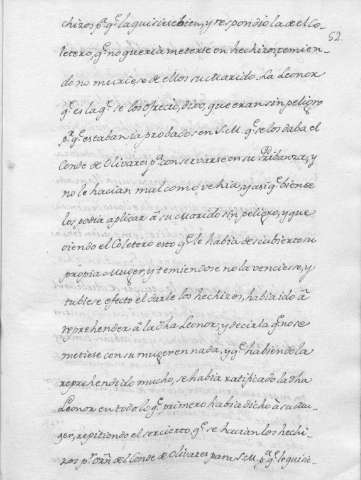 52.
chizos pª qᵉ la quisiese bien, y respondio la de el Co-
letero, qᵉ no queria meterse en hechizos, temien-
do no muriese de ellos su Marido. La Leonor
qᵉ es la qᵉ se los ofrecio, dixo, que eran sin peligro
pᵉ qᵉ estaban ia probados en S.M. qᵉ se los daba el
Conde de Olivares pª conservarse en su Pribanza, y
no le hacian mal como vehia, y asi qᵉ bien se
los podia aplicar à su marido sin peligro, y que
oiendo el Coletero esto qᵉ le habia descubierto su
propia Muger, y temiendose no la venciese, y
tubiese efecto el darle los hechizos, habia ido à
reprehender à la dha Leonor, y decirla qᵉ no se
metiese con su muger en nada, y qᵉ habiendola
reprehendido mucho, se habia ratificado la dha
Leonor en todo lo qᵉ primero habia dicho à su Mu-
ger, repitiendo el ser cierto qᵉ se hacian los hechi-
zos pʳ orñ del Conde de Olivares para S.M. pª qᵉ le quisi-